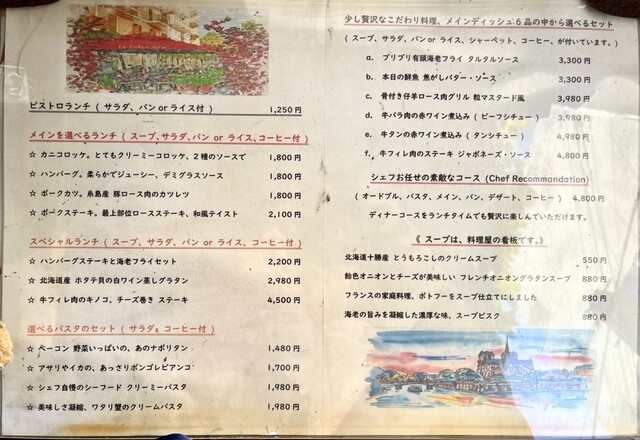 ビストロランチ ( サラダ、パン or ライス付 ) 1,250円
メインを選べるランチ ( スープ、サラダ、パン or ライス、コーヒー付 )
☆ カニコロッケ。とてもクリーミーコロッケ、2種のソースで 1,800円
☆ ハンバーグ。柔らかでジューシー、デミグラスソース 1,800円
☆ ポークカツ。糸島産 豚ロース肉のカツレツ 1,800円
☆ ポークステーキ。最上部位ロースステーキ、和風テイスト 2,100円
スペシャルランチ ( スープ、サラダ、パン or ライス、コーヒー付 )
☆ ハンバーグステーキと海老フライセット 2,200円
☆ 北海道産 ホタテ貝の白ワイン蒸しグラタン 2,980円
☆ 牛フィレ肉のキノコ、チーズ巻き ステーキ 4,500円
選べるパスタのセット ( サラダ、コーヒー付 )
☆ ベーコン 野菜いっぱいの、あのナポリタン 1,480円
☆ アサリやイカの、あっさりボンゴレビアンコ 1,700円
☆ シェフ自慢のシーフード クリーミーパスタ 1,980円
☆ 美味しさ凝縮、ワタリ蟹のクリームパスタ 1,980円
少し贅沢なこだわり料理、メインディッシュ6品の中から選べるセット
( スープ、サラダ、パン or ライス、シャーベット、コーヒー、が付いています。)
a. プリプリ有頭海老フライ タルタルソース 3,300円
b. 本日の鮮魚 焦がしバター・ソース 3,300円
c. 骨付き仔羊ロース肉グリル 粒マスタード風 3,980円
d. 牛バラ肉の赤ワイン煮込み ( ビーフシチュー ) 3,980円
e. 牛タンの赤ワイン煮込み ( タンシチュー ) 4,980円
f. 牛フィレ肉のステーキ ジャポネーズ・ソース 4,800円
シェフお任せの素敵なコース (Chef Recommandation)
( オードブル、パスタ、メイン、パン、デザート、コーヒー ) 4,800円
ディナーコースをランチタイムでも贅沢に楽しんでいただけます。
《 スープは、料理屋の看板です。》
北海道十勝産 とうもろこしのクリームスープ 550円
飴色オニオンとチーズが美味しい フレンチオニオングラタンスープ 880円
フランスの家庭料理、ポトフーをスープ仕立てにしました 880円
海老の旨みを凝縮した濃厚な味、スープビスク 880円